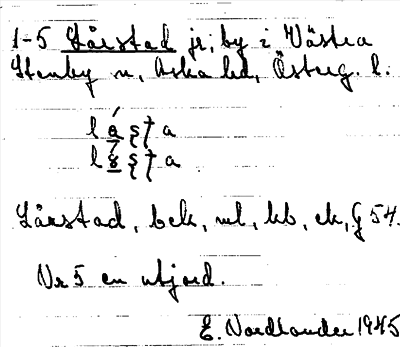 1-5 Lårstad jr, by i Västra
Stenby sn, Aska hd, Österg. l.
Lårstad, bek, ml, kb, ek, G 54.
Nr 5 en utjord.
E. Nordlander 1945